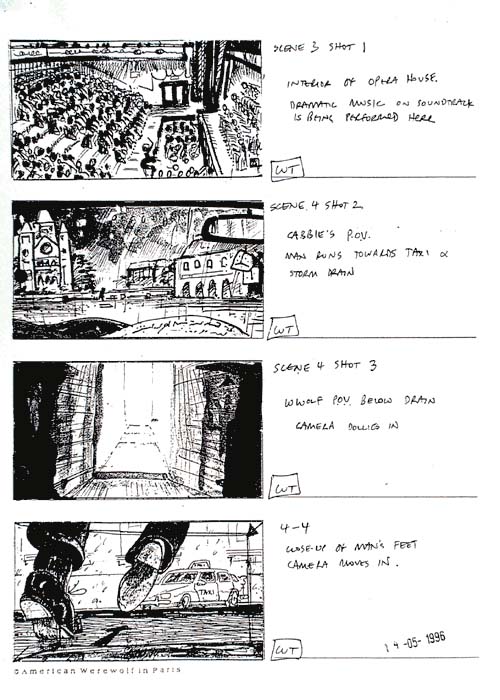 SCENE 3 SHOT 1
INTERIOR OF OPERA HOUSE.
DRAMATIC MUSIC ON SOUNDTRACK
IS BEING PERFORMED HERE
WT
SCENE 4 SHOT 2
CABBIE'S P.O.V.
MAN RUNS TOWARDS TAXI &
STORM DRAIN
WT
SCENE 4 SHOT 3
WWOLF P.O.V. BELOW DRAIN
CAMERA DOLLIES IN
WT
4-4
CLOSE-UP OF MAN'S FEET
CAMERA MOVES IN.
TAXI
WT
14-05-1996
©American Werewolf in Paris